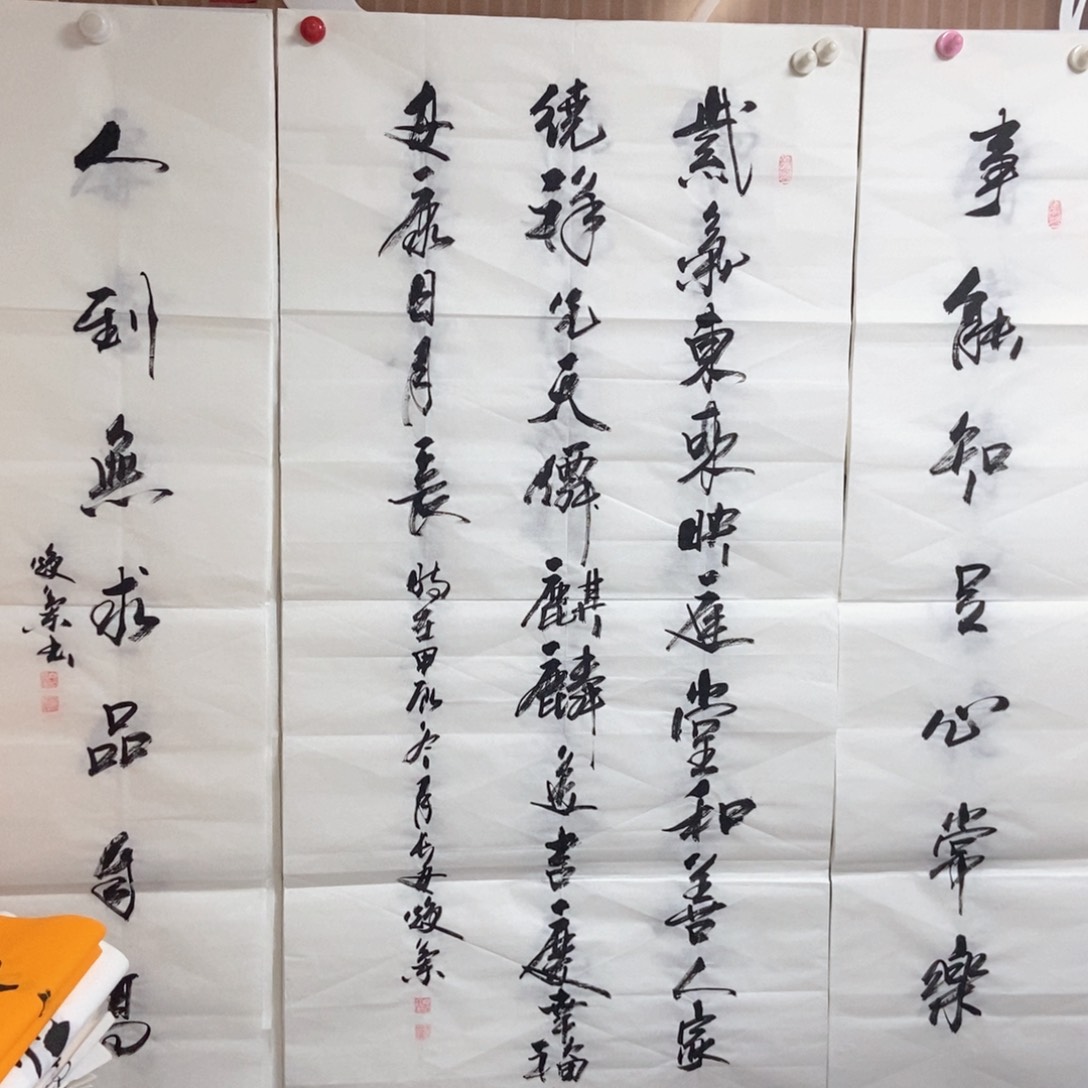 事能知足心常樂
紫氣東來映庭堂和善人家
繞祥宅天麒麟送吉慶幸福
安康日月長 時在甲辰冬月長安
人到無求品自高